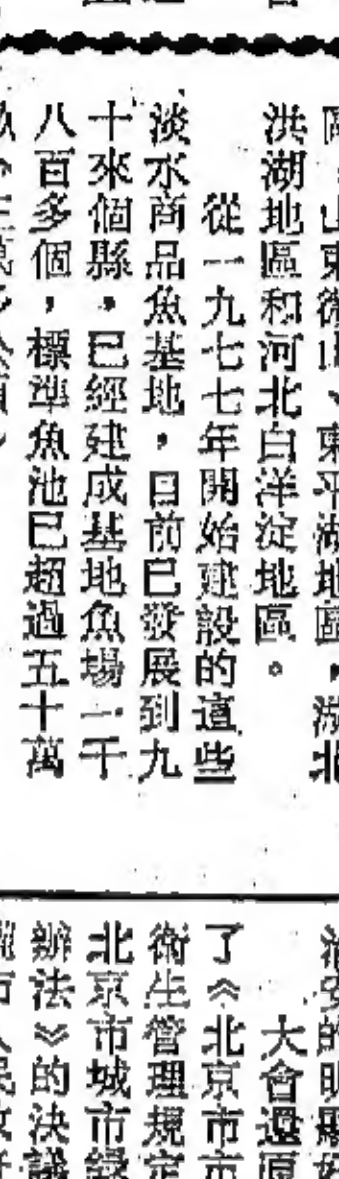 區，山東微山、東平湖地區，湖北
洪湖地區和河北白洋淀地區。
從一九七七年開始建設的這些
淡水商品魚基地，目前已發展到九
十來個縣，已經建成基地魚場一千
八百多個，標準魚池已超過五十萬
治安的明顯好
大會還原
了《北京市市
衛生管理規定
北京市城市綠
辦法》的決議